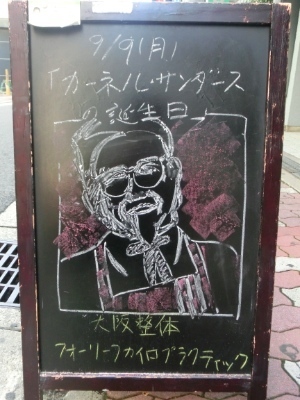 9/9(月)
「カーネル・サンダース
の誕生日」
大阪整体
フォーリーフカイロプラクティック